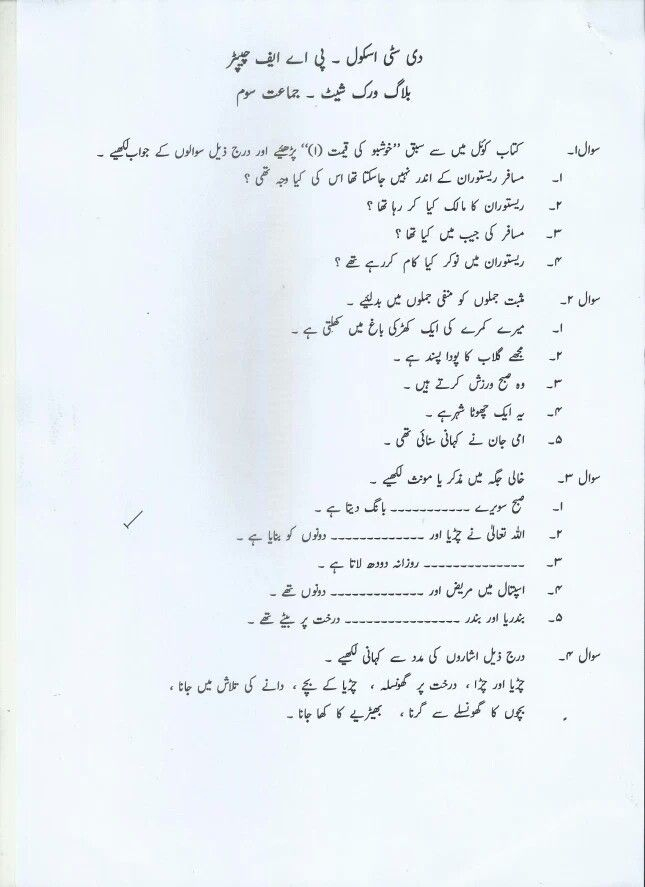 دی سٹی اسکول ۔ پی اے ایف چیپٹر
بلاگ ورک شیٹ ۔ جماعت سوم
سوال۱۔ کتاب کوئل میں سے سبق ’’خوشبو کی قیمت (۱)‘‘ پڑھئیے اور درج ذیل سوالوں کے جواب لکھیے ۔
۱۔ مسافر ریستوران کے اندر نہیں جاسکتا تھا اس کی کیا وجہ تھی ؟
۲۔ ریستوران کا مالک کیا کر رہا تھا ؟
۳۔ مسافر کی جیب میں کیا تھا ؟
۴۔ ریستوران میں نوکر کیا کام کررہے تھے ؟
سوال ۲۔ مثبت جملوں کو منفی جملوں میں بدلئیے ۔
۱۔ میرے کمرے کی ایک کھڑکی باغ میں کھلتی ہے ۔
۲۔ مجھے گلاب کا پودا پسند ہے ۔
۳۔ وہ صبح ورزش کرتے ہیں ۔
۴۔ یہ ایک چھوٹا شہرہے ۔
۵۔ امی جان نے کہانی سنائی تھی ۔
سوال ۳۔ خالی جگہ میں مذکر یا مونث لکھیے ۔
۱۔ صبح سویرے ----------- بانگ دیتا ہے ۔
۲۔ اللہ تعالیٰ نے چڑیا اور ------------- دونوں کو بنایا ہے ۔
۳۔ -------------- روزانہ دودھ لاتا ہے ۔
۴۔ اسپتال میں مریض اور ------------- دونوں تھے ۔
۵۔ بندریا اور بندر ---------------- درخت پر بیٹے تھے ۔
سوال ۴۔ درج ذیل اشاروں کی مدد سے کہانی لکھیے ۔
چڑیا اور چڑا ، درخت پر گھونسلہ ، چڑیا کے بچے ، دانے کی تلاش میں جانا ،
بچوں کا گھونسلے سے گرنا ، بھیڑیے کا کھا جانا ۔